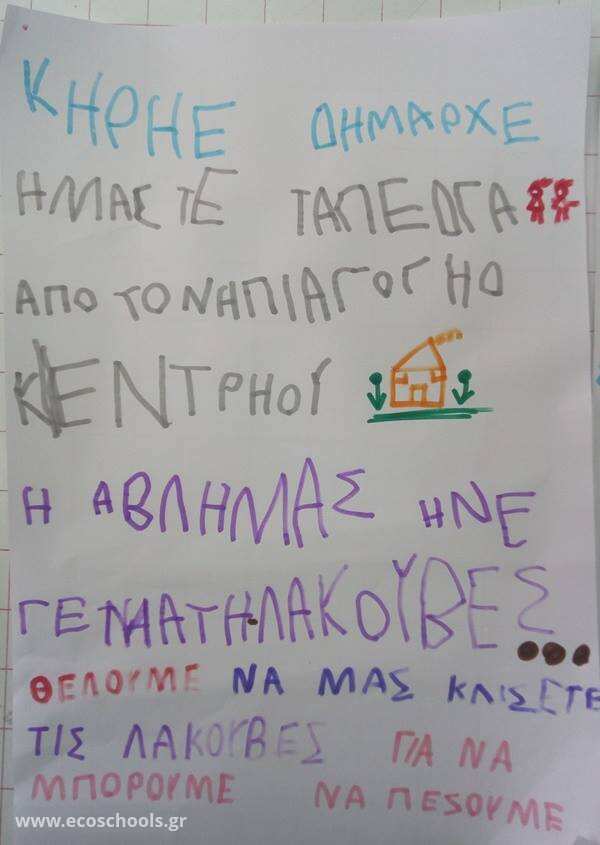 ΚΗΡΗΕ ΔΗΜΑΡΧΕ
ΗΜΑΣΤΕ ΤΑΠΕΔΓΑ
ΑΠΟ ΤΟ ΝΗΠΙΑΓΟΓΗΟ
ΚΕΝΤΡΗΟΥ
Η ΑΒΛΗΜΑΣ ΗΝΕ
ΓΕΜΑΤΗΛΑΚΟΥΒΕΣ...
ΘΕΛΟΥΜΕ ΝΑ ΜΑΣ ΚΛΙΣΕΤΕ
ΤΙΣ ΛΑΚΟΥΒΕΣ ΓΙΑ ΝΑ
ΜΠΟΡΟΥΜΕ ΝΑ ΠΕΣΟΥΜΕ
www.ecoschools.gr